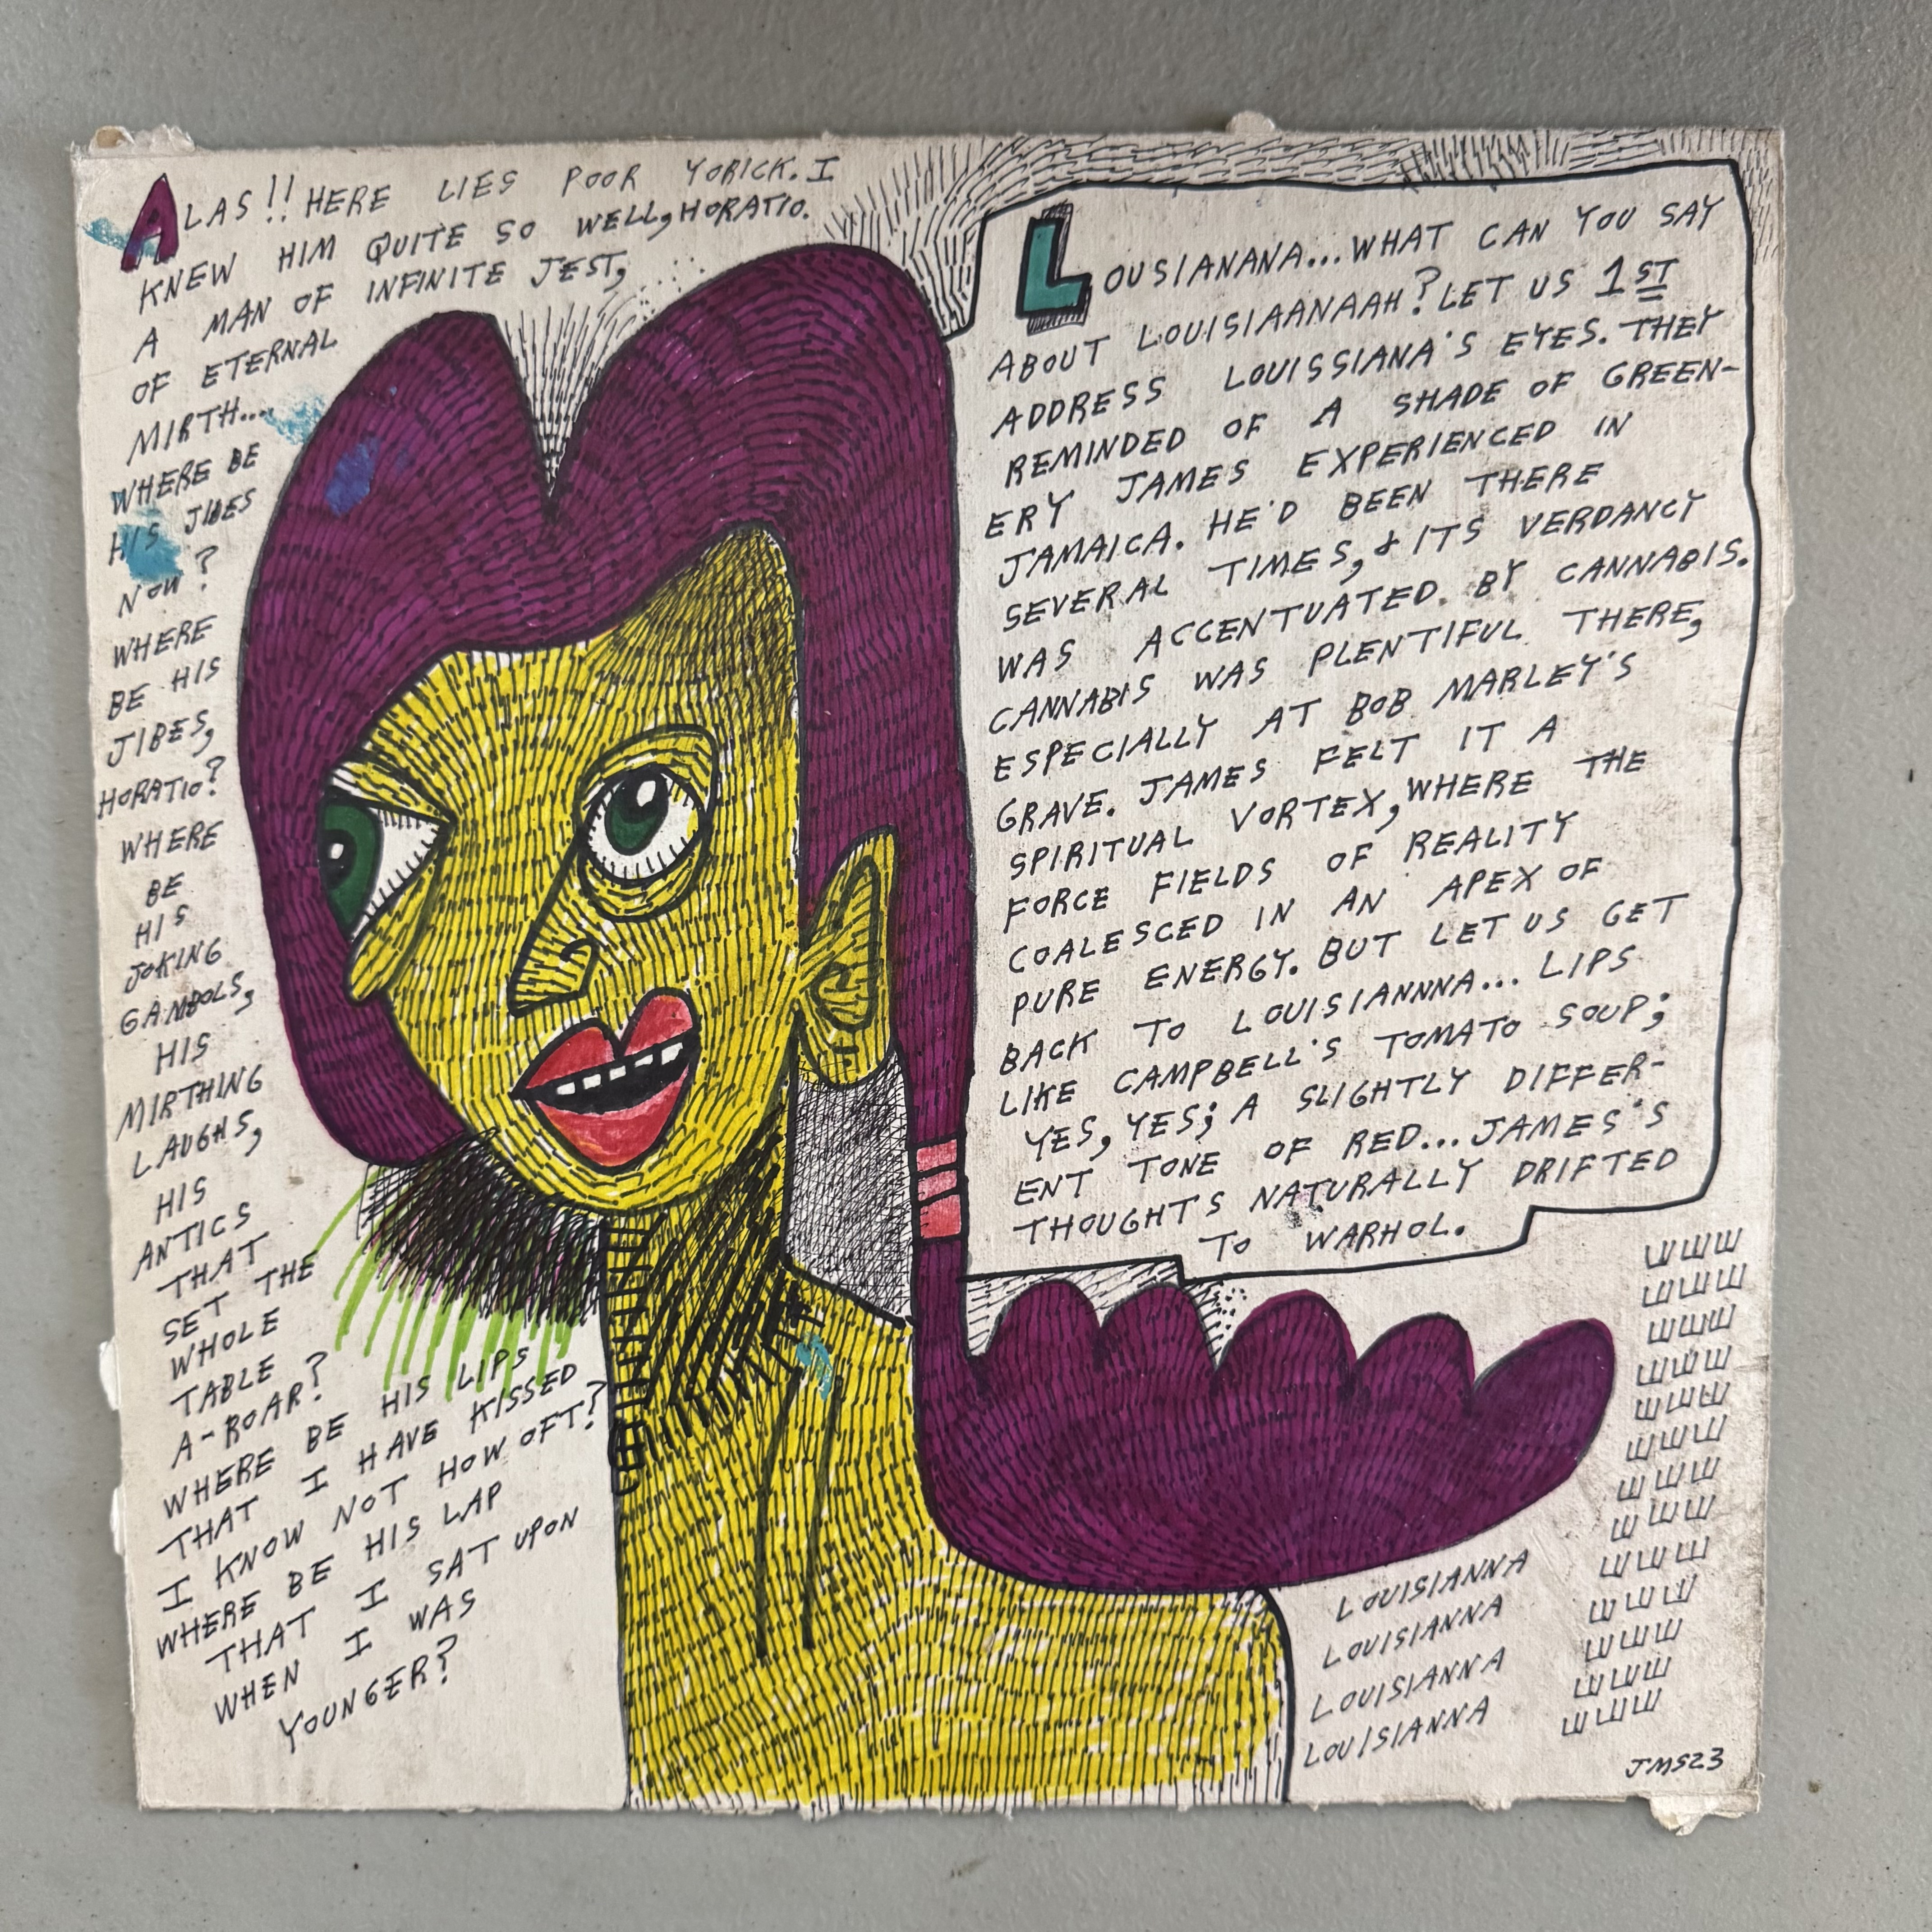 ALAS!! HERE LIES POOR YORICK. I
KNEW HIM QUITE SO WELL, HORATIO.
A MAN OF INFINITE JEST,
OF ETERNAL
MIRTH....
WHERE BE
HIS JIBES
NOW?
WHERE
BE HIS
JIBES,
HORATIO?
WHERE
BE
HIS
JOKING
GAMBOLS,
HIS
MIRTHING
LAUGHS,
HIS
ANTICS
THAT
SET THE
WHOLE
TABLE
A-ROAR?
WHERE BE HIS LIPS
THAT I HAVE KISSED
I KNOW NOT HOW OFT?
WHERE BE HIS LAP
THAT I SAT UPON
WHEN I WAS
YOUNGER?
LOUSIANANA...WHAT CAN YOU SAY
ABOUT LOUISIAANAAH? LET US 1ST
ADDRESS LOUISSIANA'S EYES. THEY
REMINDED OF A SHADE OF GREEN-
ERY JAMES EXPERIENCED IN
JAMAICA. HE'D BEEN THERE
SEVERAL TIMES, & ITS VERDANCY
WAS ACCENTUATED BY CANNABIS.
CANNABIS WAS PLENTIFUL THERE,
ESPECIALLY AT BOB MARLEY'S
GRAVE. JAMES FELT IT A
SPIRITUAL VORTEX, WHERE THE
FORCE FIELDS OF REALITY
COALESCED IN AN APEX OF
PURE ENERGY. BUT LET US GET
BACK TO LOUISIANNNA... LIPS
LIKE CAMPBELL'S TOMATO SOUP;
YES, YES; A SLIGHTLY DIFFER-
ENT TONE OF RED...JAMES'S
THOUGHTS NATURALLY DRIFTED
TO WARHOL.
LOUISIANNA
LOUISIANNA
LOUISIANNA
LOUISIANNA
JMS23